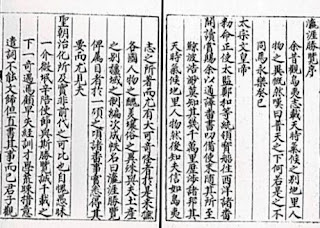 瀛涯勝覽序
余昔觀島夷志載天時氣候之別地里人
物之異慨然嘆曰普天之下何若是之不
同焉永樂癸巳
太宗文皇帝
勅命正使太監鄭和等統領寶船往西洋諸番
開讀賞賜余以通譯番書備使末隨其所至
鯨波浩渺莫知其幾千萬里歷涉諸邦其
天時氣候地里人物然後知夫信如島夷
志之所著而尤有大可奇怪者於是采摭
各國人物之媸美壤俗之異殊與夫土產
之別疆域之制編次成帙名曰瀛涯勝覽
俾屬目者於一頃諸番事實悉得其
要而尤見夫
聖朝治化所及實非前代之可比也自愧愚昧
一介微氓幸陪使節與斯勝覽誠千載之
下一奇遇焉顧早失經訓才學荒疎措意
遣詞不能文飾但直書其事而已君子觀